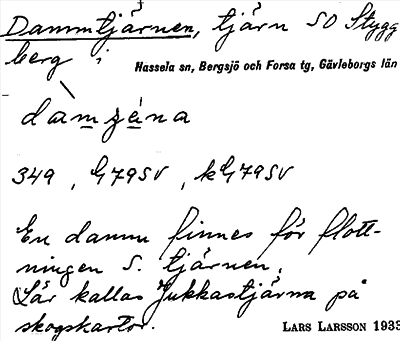 Dammtjärnen, tjärn SO Stygg
berg i
Hassela sn, Bergsjö och Forsa tg, Gävleborgs län
349
En damm finnes för flott-
ningen S. tjärnen.
Lär kallas Jukkastjärna på
skogskartor.
LARS LARSSON 1933